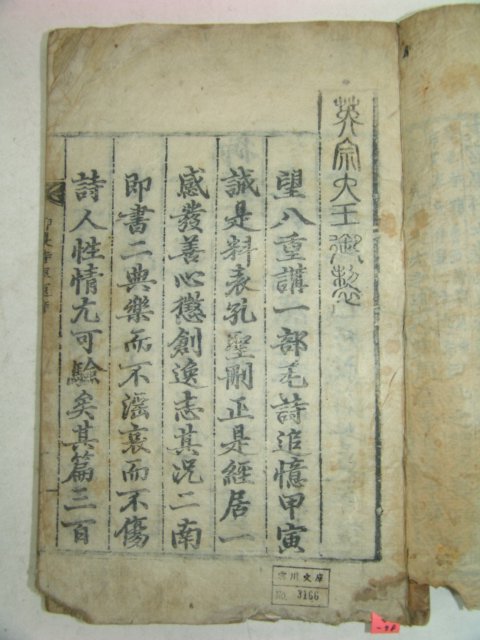 英宗大王御製
望八重講一部毛詩追憶甲寅
誠是料表孔聖刪正是經居一
感發善心懲創逸志其況二南
即書二典樂而不滛哀而不傷
詩人性情尤可驗矣其篇三百
No. 3166